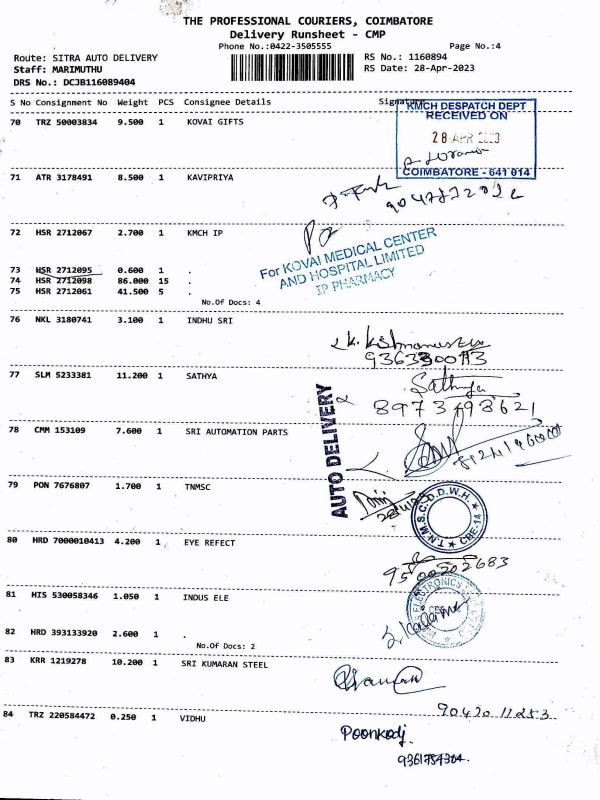 THE PROFESSIONAL COURIERS, COIMBATORE
Delivery Runsheet - CMP
Phone No.:0422-3505555 Page No.:4
Route: SITRA AUTO DELIVERY RS No.: 1160894
Staff: MARIMUTHU RS Date: 28-Apr-2023
DRS No.: DCJB116089404
S No Consignment No Weight PCS Consignee Details Signature
KMCH DESPATCH DEPT
RECEIVED ON
70 TRZ 50003834 9.500 1 KOVAI GIFTS
28 APR 2023
COIMBATORE - 641 014
71 ATR 3178491 8.500 1 KAVIPRIYA
72 HSR 2712067 2.700 1 KMCH IP
For KOVAI MEDICAL CENTER
AND HOSPITAL LIMITED
IP PHARMACY
73 HSR 2712095 0.600 1 .
74 HSR 2712098 86.000 15 .
75 HSR 2712061 41.500 5 .
No.Of Docs: 4
76 NKL 3180741 3.100 1 INDHU SRI
77 SLM 5233381 11.200 1 SATHYA
Sathya
AUTO DELIVERY
78 CMM 153109 7.600 1 SRI AUTOMATION PARTS
79 PON 7676807 1.700 1 TNMSC
T.N.M.S.C. D.D.W.H.
CBE-14
80 HRD 7000010413 4.200 1 EYE REFECT
9500202683
81 HIS 530058346 1.050 1 INDUS ELE
ELECTRONICS
82 HRD 393133920 2.600 1 .
No.Of Docs: 2
83 KRR 1219278 10.200 1 SRI KUMARAN STEEL
90420 11253
84 TRZ 220584472 0.250 1 VIDHU
Poonkodj.
9361784304